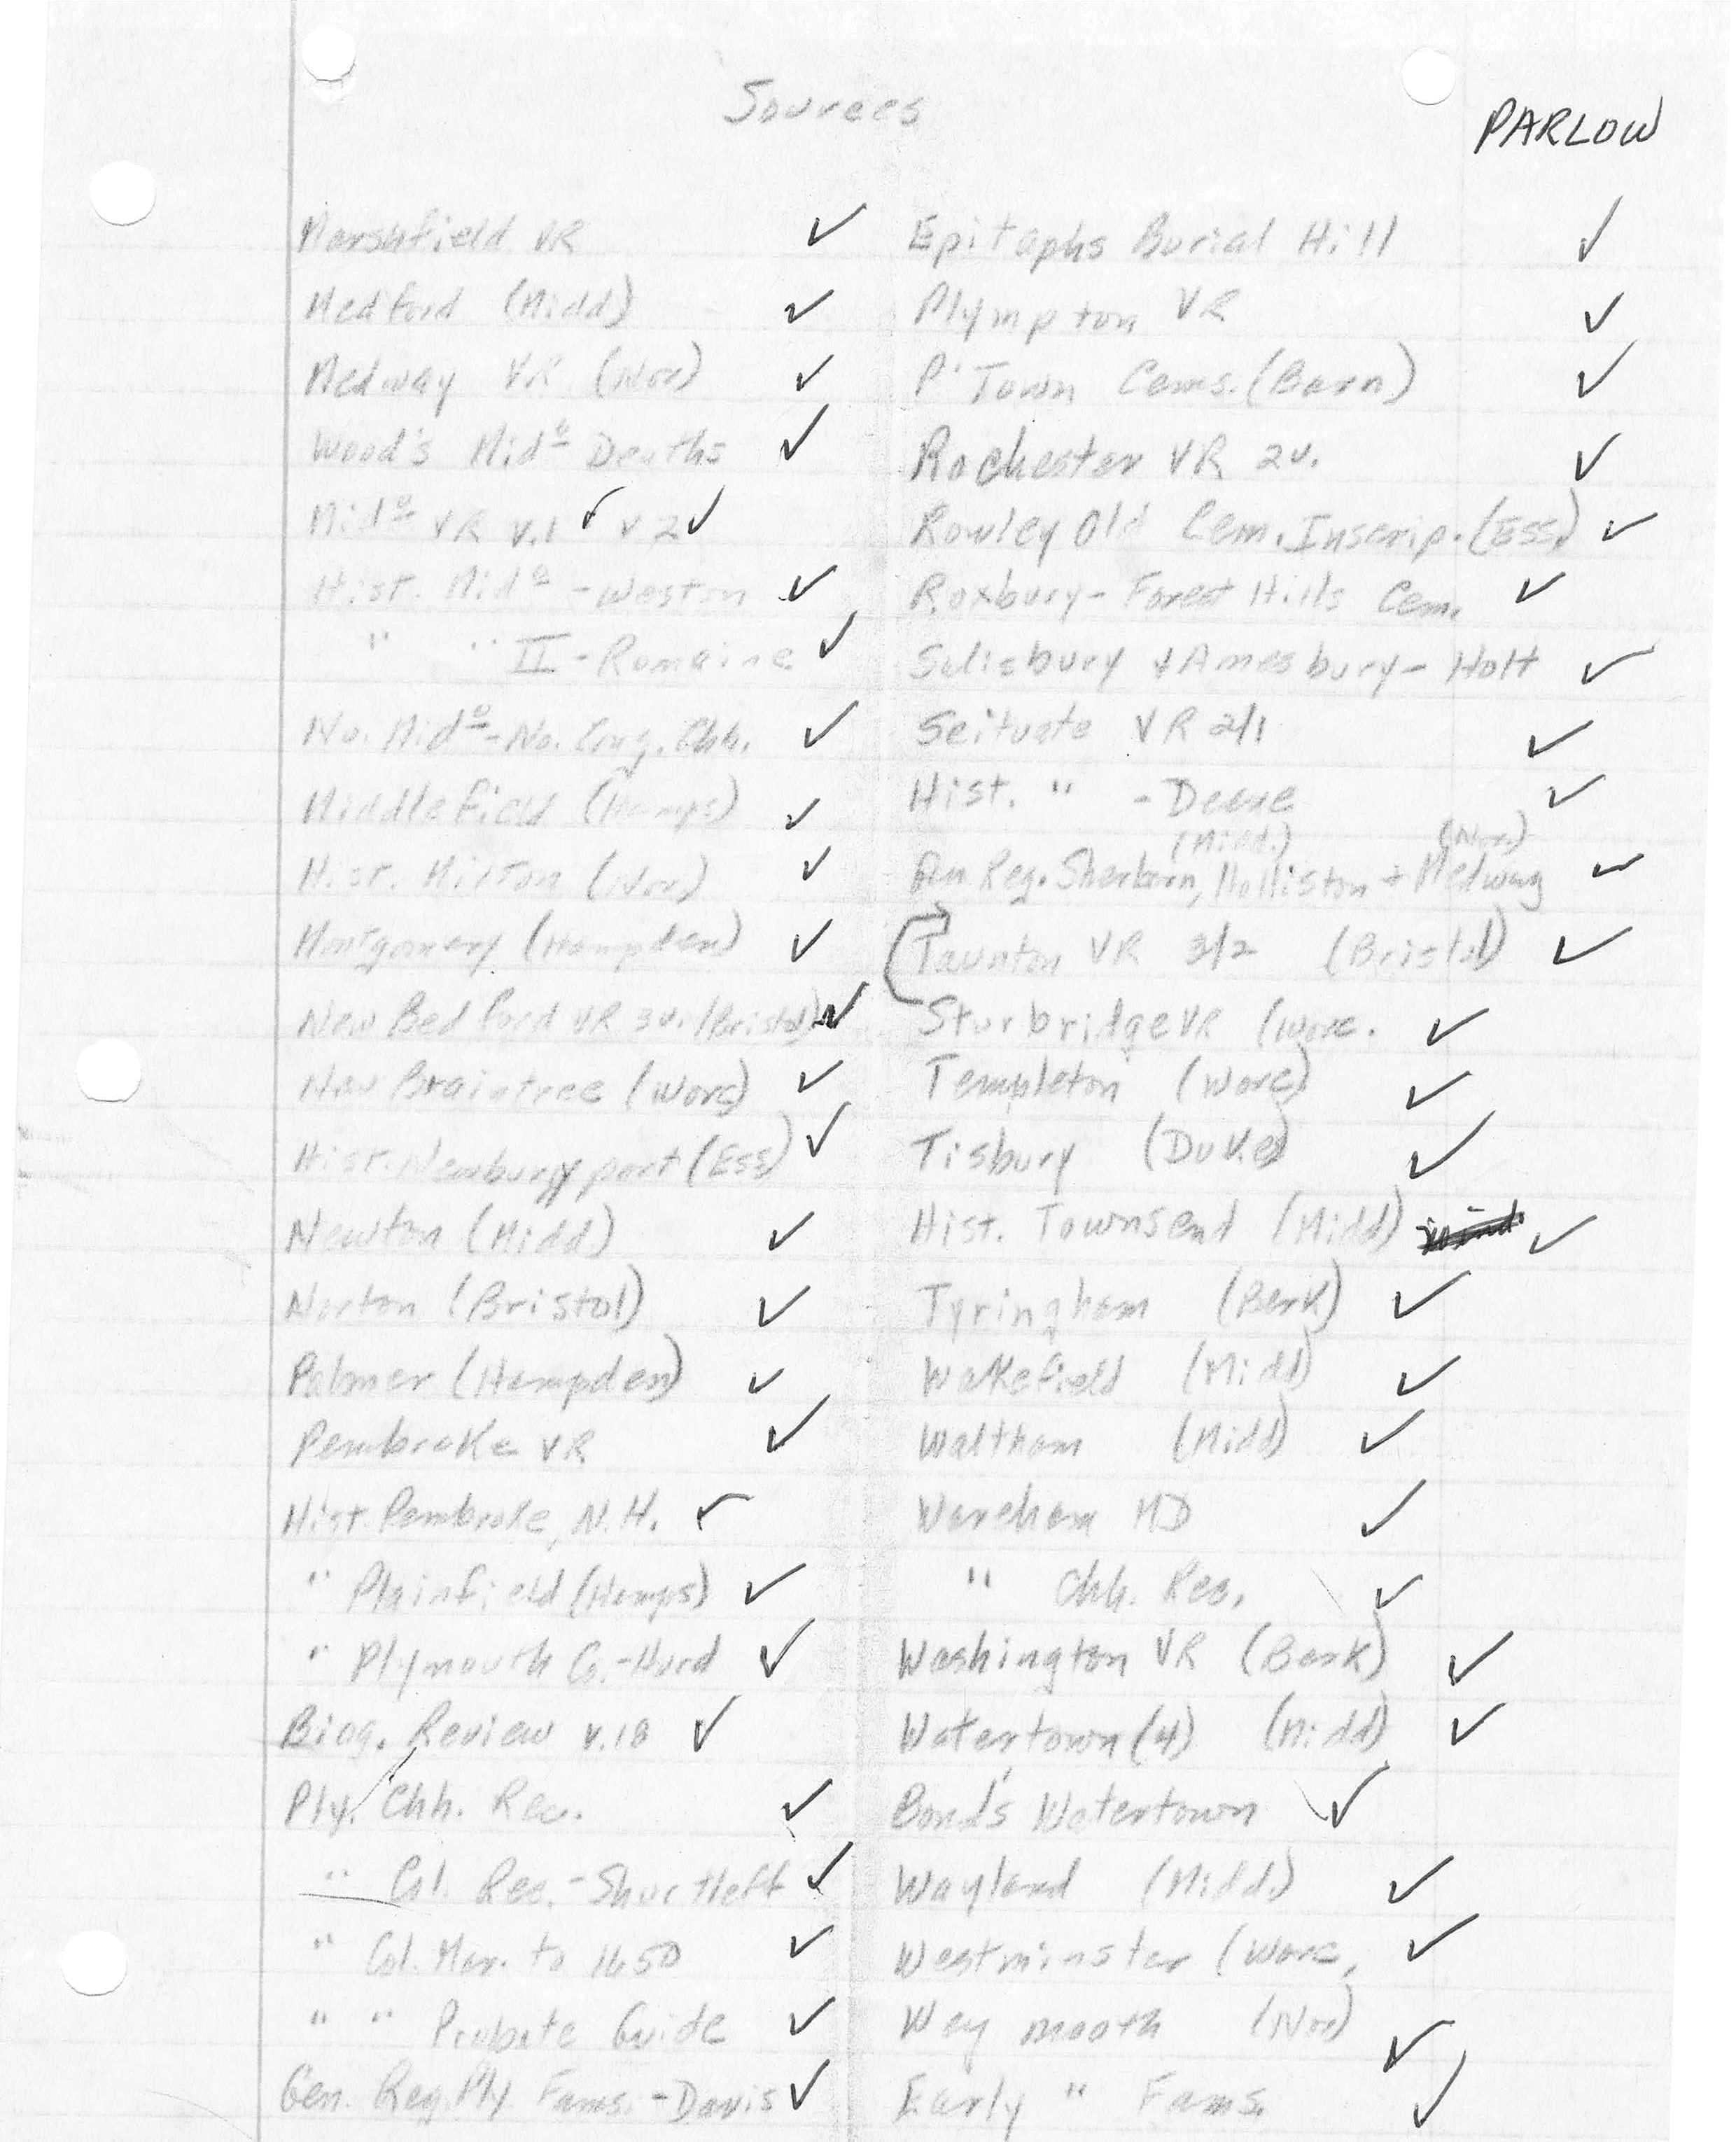 Sources
PARLOW
Marshfield VR ✓
Medford (Midd) ✓
Medway VR (Nor) ✓
Wood's Mid⁰ Deaths ✓
Mid⁰ VR v.1 ✓ v 2 ✓
Hist. Mid⁰ - Weston ✓
" " II - Romaine ✓
No. Mid⁰ - No. Cong. Chh. ✓
Middlefield (Hamps) ✓
Hist. Milton (Nor) ✓
Montgomery (Hampden) ✓
New Bedford VR 3v. (Bristol) ✓
New Braintree (Worc) ✓
Hist. Newburyport (Ess) ✓
Newton (Midd) ✓
Norton (Bristol) ✓
Palmer (Hampden) ✓
Pembroke VR ✓
Hist. Pembroke, N.H. ✓
" Plainfield (Hamps) ✓
" Plymouth Co. - Hurd ✓
Biog. Review v.18 ✓
Ply. Chh. Rec. ✓
" Col. Rec. - Shurtleff ✓
" Col. Mar. to 1650 ✓
" " Probate Guide ✓
Gen. Reg. Ply. Fams. - Davis ✓
Epitaphs Burial Hill ✓
Plympton VR ✓
P'Town Cems. (Barn) ✓
Rochester VR 2v. ✓
Rowley Old Cem. Inscrip. (Ess) ✓
Roxbury - Forest Hills Cem. ✓
Salisbury & Amesbury - Hoyt ✓
Scituate VR 2/1 ✓
Hist. " - Deane ✓
(Midd.) (Nor.)
Gen. Reg. Sherborn, Holliston + Medway ✓
Taunton VR 3/2 (Bristol) ✓
Sturbridge VR (Worc. ✓
Templeton (Worc) ✓
Tisbury (Duke) ✓
Hist. Townsend (Midd) ✓
Tyringham (Berk) ✓
Wakefield (Midd) ✓
Waltham (Midd) ✓
Wareham MD ✓
" Chh. Rec. ✓
Washington VR (Berk) ✓
Watertown (4) (Midd) ✓
Bond's Watertown ✓
Wayland (Midd) ✓
Westminster (Worc, ✓
Weymouth (Nor) ✓
Early " Fams. ✓